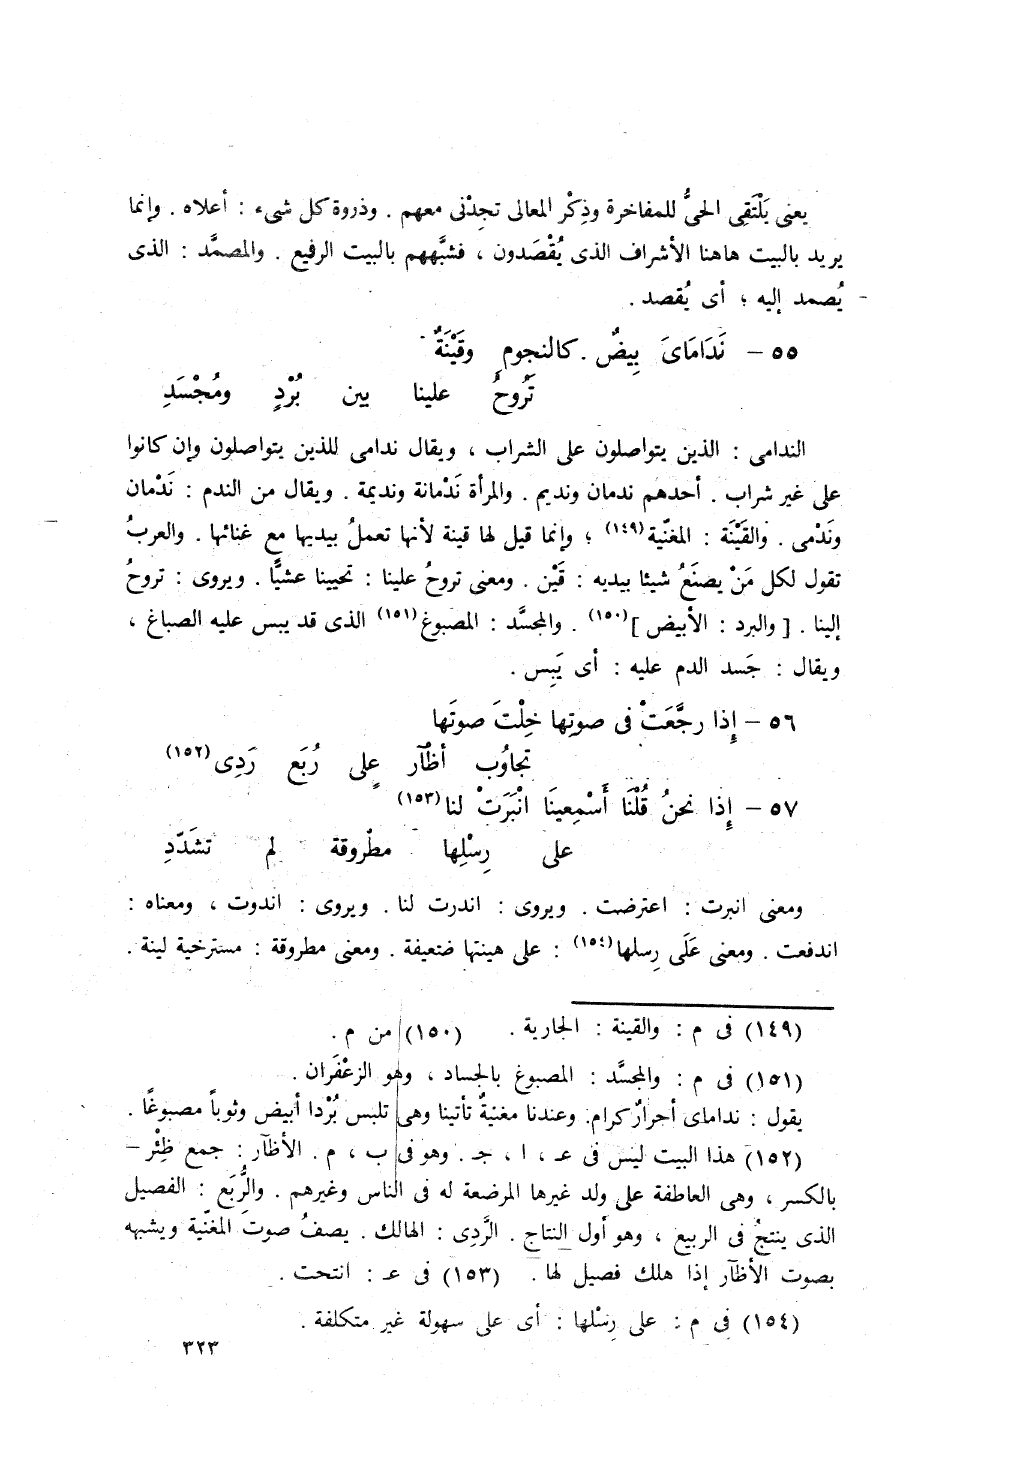 يعنى يَلْتَقِى الحىُّ للمفاخرة وذِكْر المعالى تجِدْنى معهم . وذروة كل شىء : أعلاه . وإنما
يريد بالبيت هاهنا الأشراف الذى يُقْصَدون ، فشبَّههم بالبيت الرفيع . والمصمَّد : الذى
يُصمد إليه ؛ أى يُقصد .
٥٥ – نَدَامَاىَ بِيضٌ . كالنجومِ وقَيْنَةٌ
تَرُوحُ علينا بين بُرْدٍ ومُجْسَدِ
الندامى : الذين يتواصلون على الشراب ، ويقال ندامى للذين يتواصلون وإن كانوا
على غير شراب . أحدهم ندمان ونديم . والمرأة نَدْمانة ونديمة . ويقال من الندم : نَدْمان
ونَدْمى . والقَيْنَة : المغنّية (١٤٩) ؛ وإنما قيل لها قينة لأنها تعملُ بيديها مع غنائها . والعربُ
تقول لكل مَنْ يصنَعُ شيئا بيديه : قَيْن . ومعنى تروحُ علينا : تحيينا عشيًّا . ويروى : تروحُ
إلينا . [ والبرد : الأبيض ] (١٥٠) . والمجسَّد : المصبوغ (١٥١) الذى قد يبس عليه الصباغ ،
ويقال : جَسد الدم عليه : أى يَبِس .
٥٦ – إِذا رجَّعَتْ فى صوتِها خِلْتَ صوتَها
تجاوُب أظْآر على رُبَع رَدِى (١٥٢)
٥٧ – إِذا نحنُ قُلْنَا أَسْمِعينَا انْبَرَتْ لنا (١٥٣)
على رِسْلِها مطْروقة لم تشَدَّدِ
ومعنى انبرت : اعترضت . ويروى : اندرت لنا . ويروى : اندوت ، ومعناه :
اندفعت . ومعنى عَلَى رِسلها (١٥٤) : على هينتها ضعيفة . ومعنى مطروقة : مسترخية لينة .
(١٤٩) فى م : والقينة : الجارية . (١٥٠) من م .
(١٥١) فى م : والمجسَّد : المصبوغ بالجساد ، وهو الزعْفَران .
يقول : نداماى أحرارٌ كرام. وعندنا مغنيةٌ تأتينا وهى تلبس بُرْدا أبيض وثوباً مصبوغًا .
(١٥٢) هذا البيت ليس فى عـ ، ا ، جـ . وهو فى ب ، م . الأظآر : جمع ظِئْر –
بالكسر ، وهى العاطفة على ولد غيرها المرضعة له فى الناس وغيرهم . والرُّبَع : الفصيل
الذى ينتجُ فى الربيع ، وهو أول النتاج . الرَّدِى : الهالك . يصفُ صوتَ المغنّية ويشبهه
بصوت الأظآر إذا هلك فصيل لها . (١٥٣) فى عـ : انتحت .
(١٥٤) فى م : على رِسْلها : أى على سهولة غير متكلفة .
٣٢٣